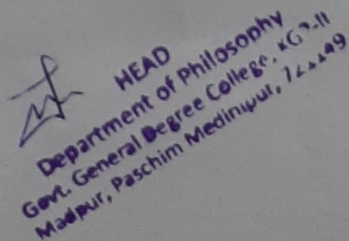 HEAD
Department of Philosophy
Govt. General Degree College,
Madpur, Paschim Medinipur,